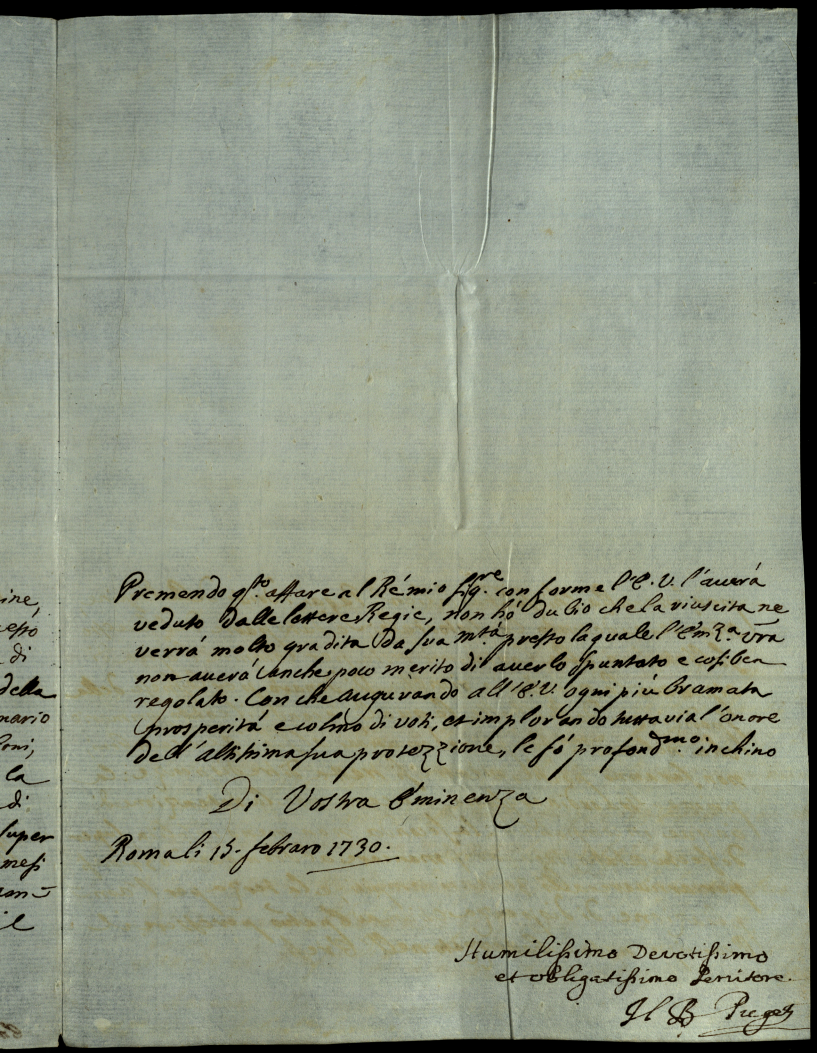 ine,
esso
di
della
nario
loni,
la
di
super
mesi
il
Premendo q.sto affare al Rémio Sig.re conforme l'E.V. l'auerà
veduto dalle lettere Regie, non hó dubio che la riuscita ne
verrá molto gradita da sua m.tá presso la quale l'Em.za vra
non auerá anche poco merito di auerlo spuntato e cosi ben
regolato. Con che augurando all'E.V. ogni piú bramata
prosperitá e colmo di voti, et implorando tuttavia l'onore
dell'altissima sua protezzione, le fó profond.mo inchino
Di Vostra Eminenza
Roma li 15. febraro 1730.
Humilissimo Devotissimo
et obligatissimo Seruitore.
Il B Puget